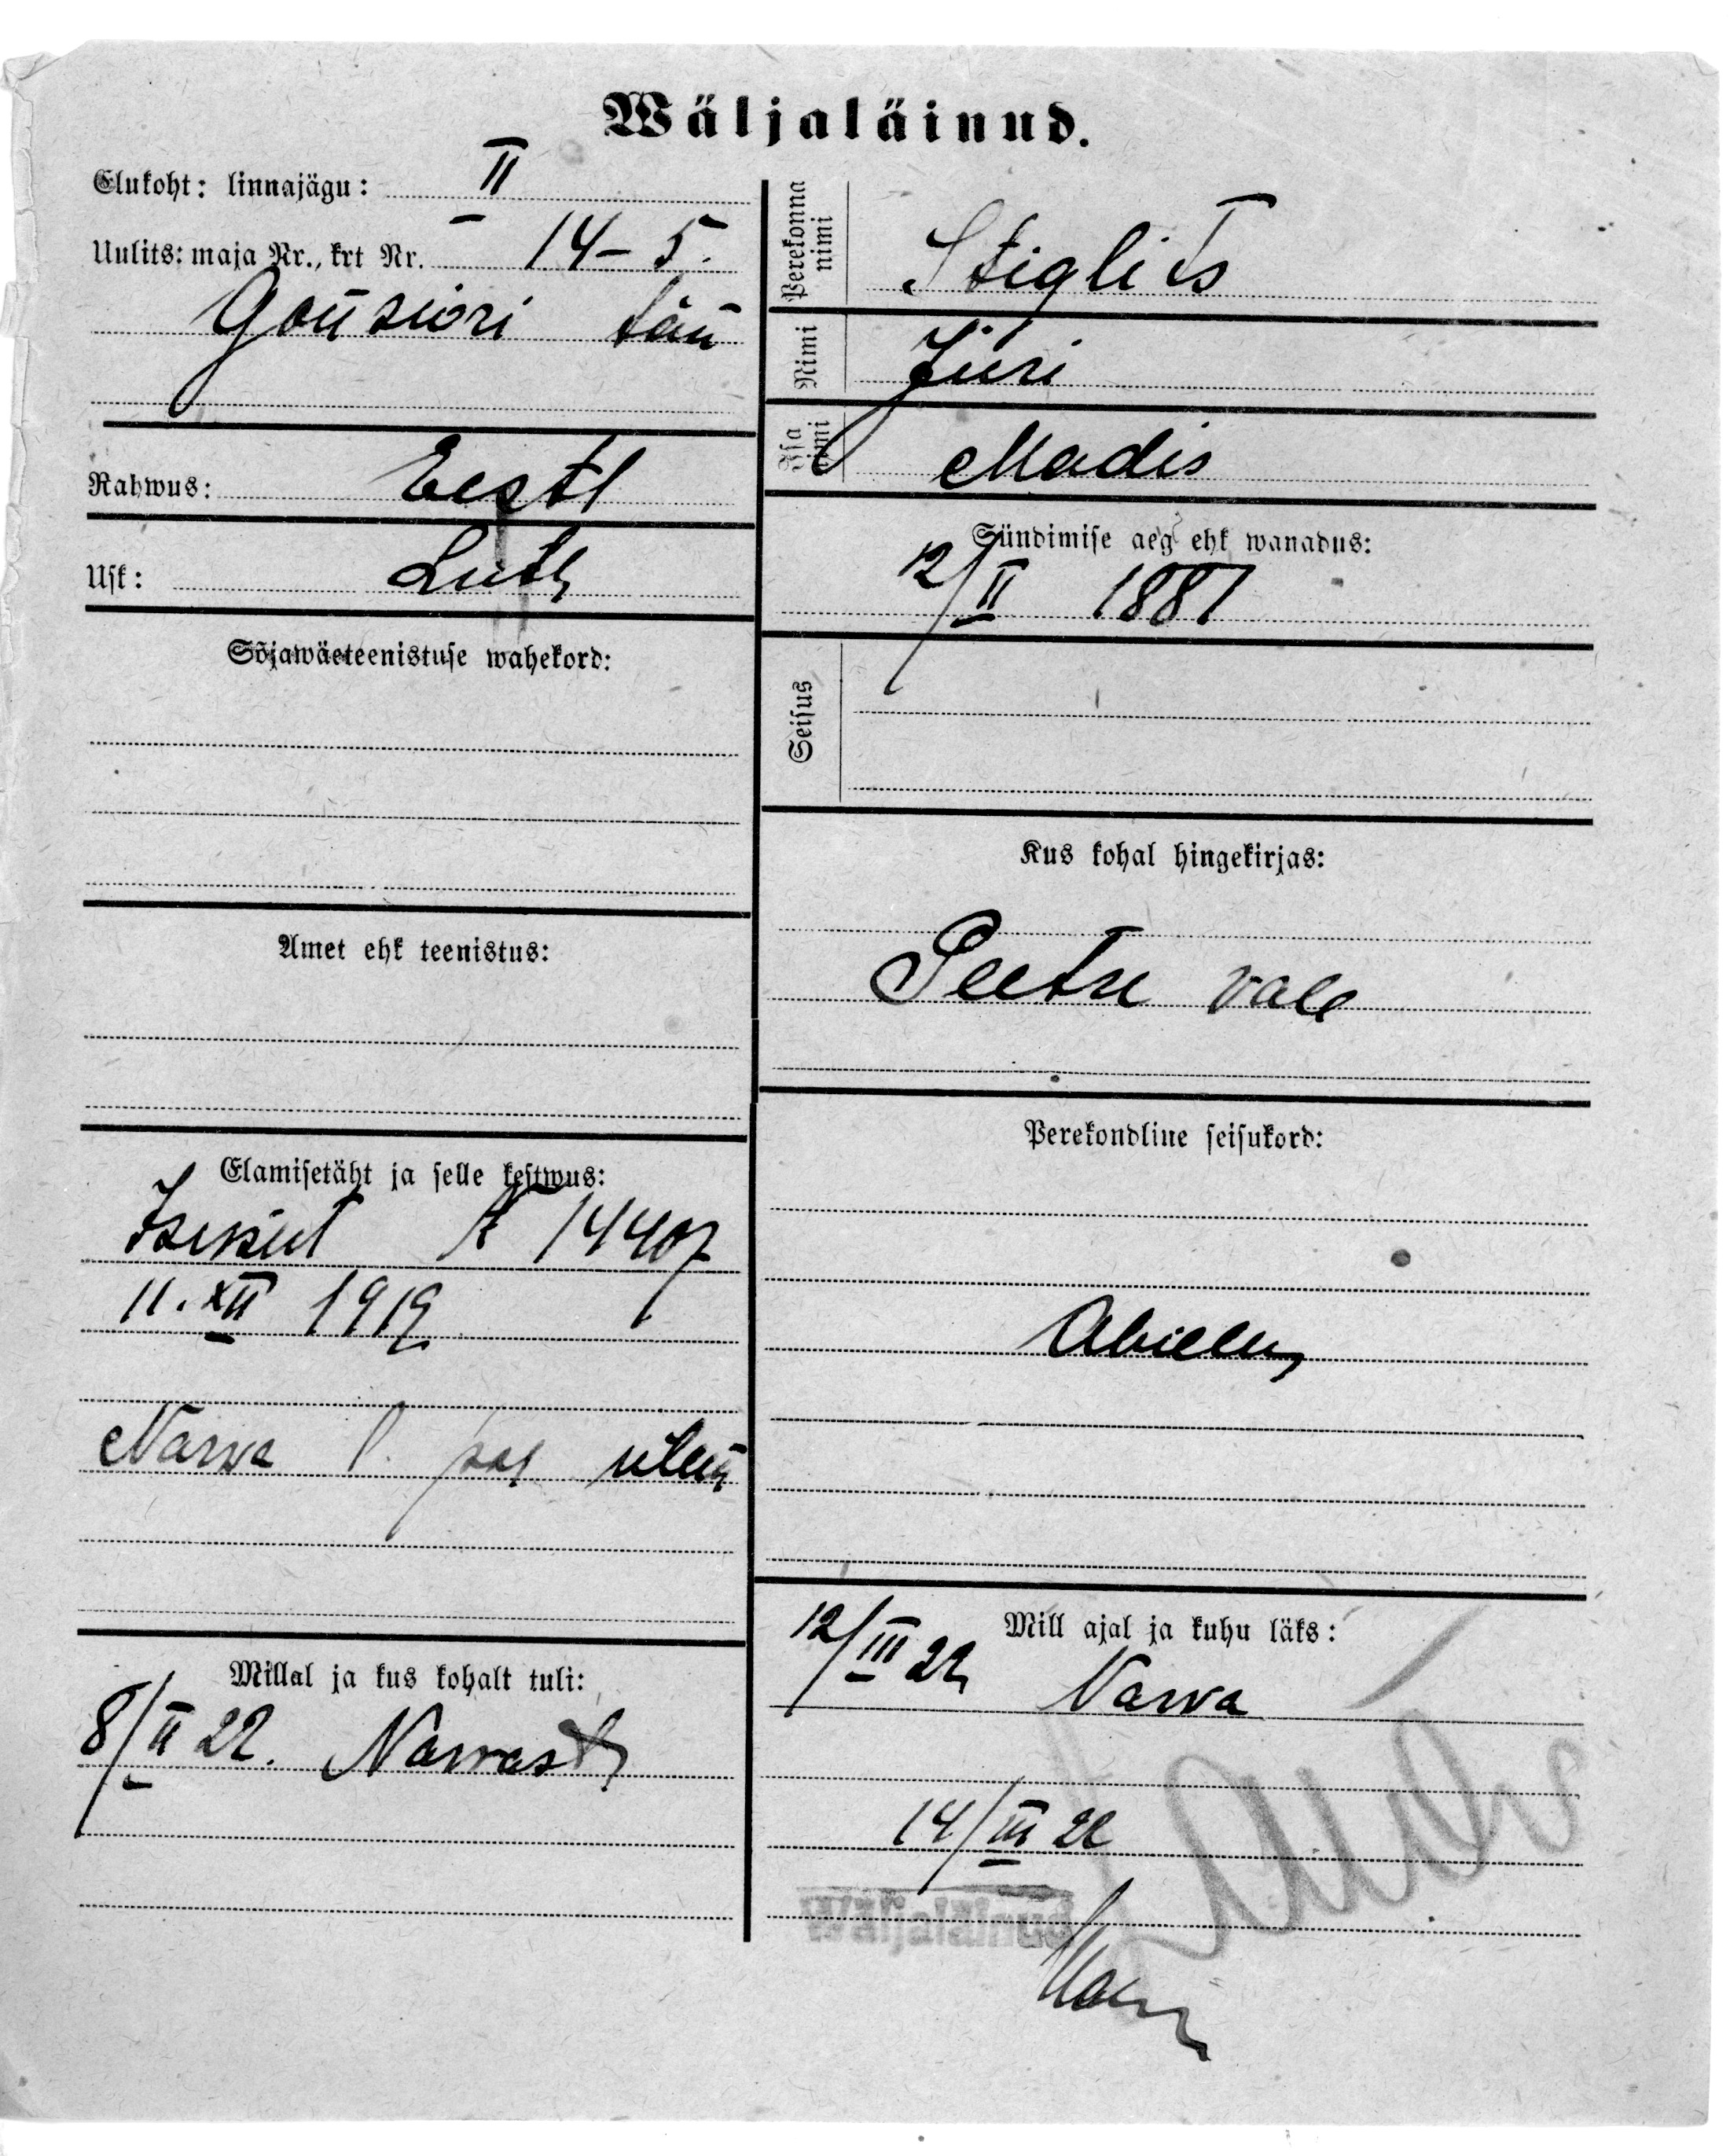 Wäljaläinud.
Elukoht: linnajägu: II
Uulits: maja Nr., krt Nr. 14-5.
Gonsiori tän
Rahwus: Eestl
Usk: Luth
Sõjawäeteenistuse wahekord:
Amet ehk teenistus:
Elamisetäht ja selle kestwus:
Isikut A 14407
11. XII 1919
Narwa l. pol ülem
Millal ja kus kohalt tuli:
8/II 22. Narvast
Perekonna nimi
Stiglits
Nimi
Jüri
Isa nimi
Madis
Sündimise aeg ehk wanadus:
12/II 1887
Seisus
Kus kohal hingekirjas:
Peetri vald
Perekondline seisukord:
Abielus
Mill ajal ja kuhu läks:
12/III 22 Narva
14/III 22
Wäljaläinud